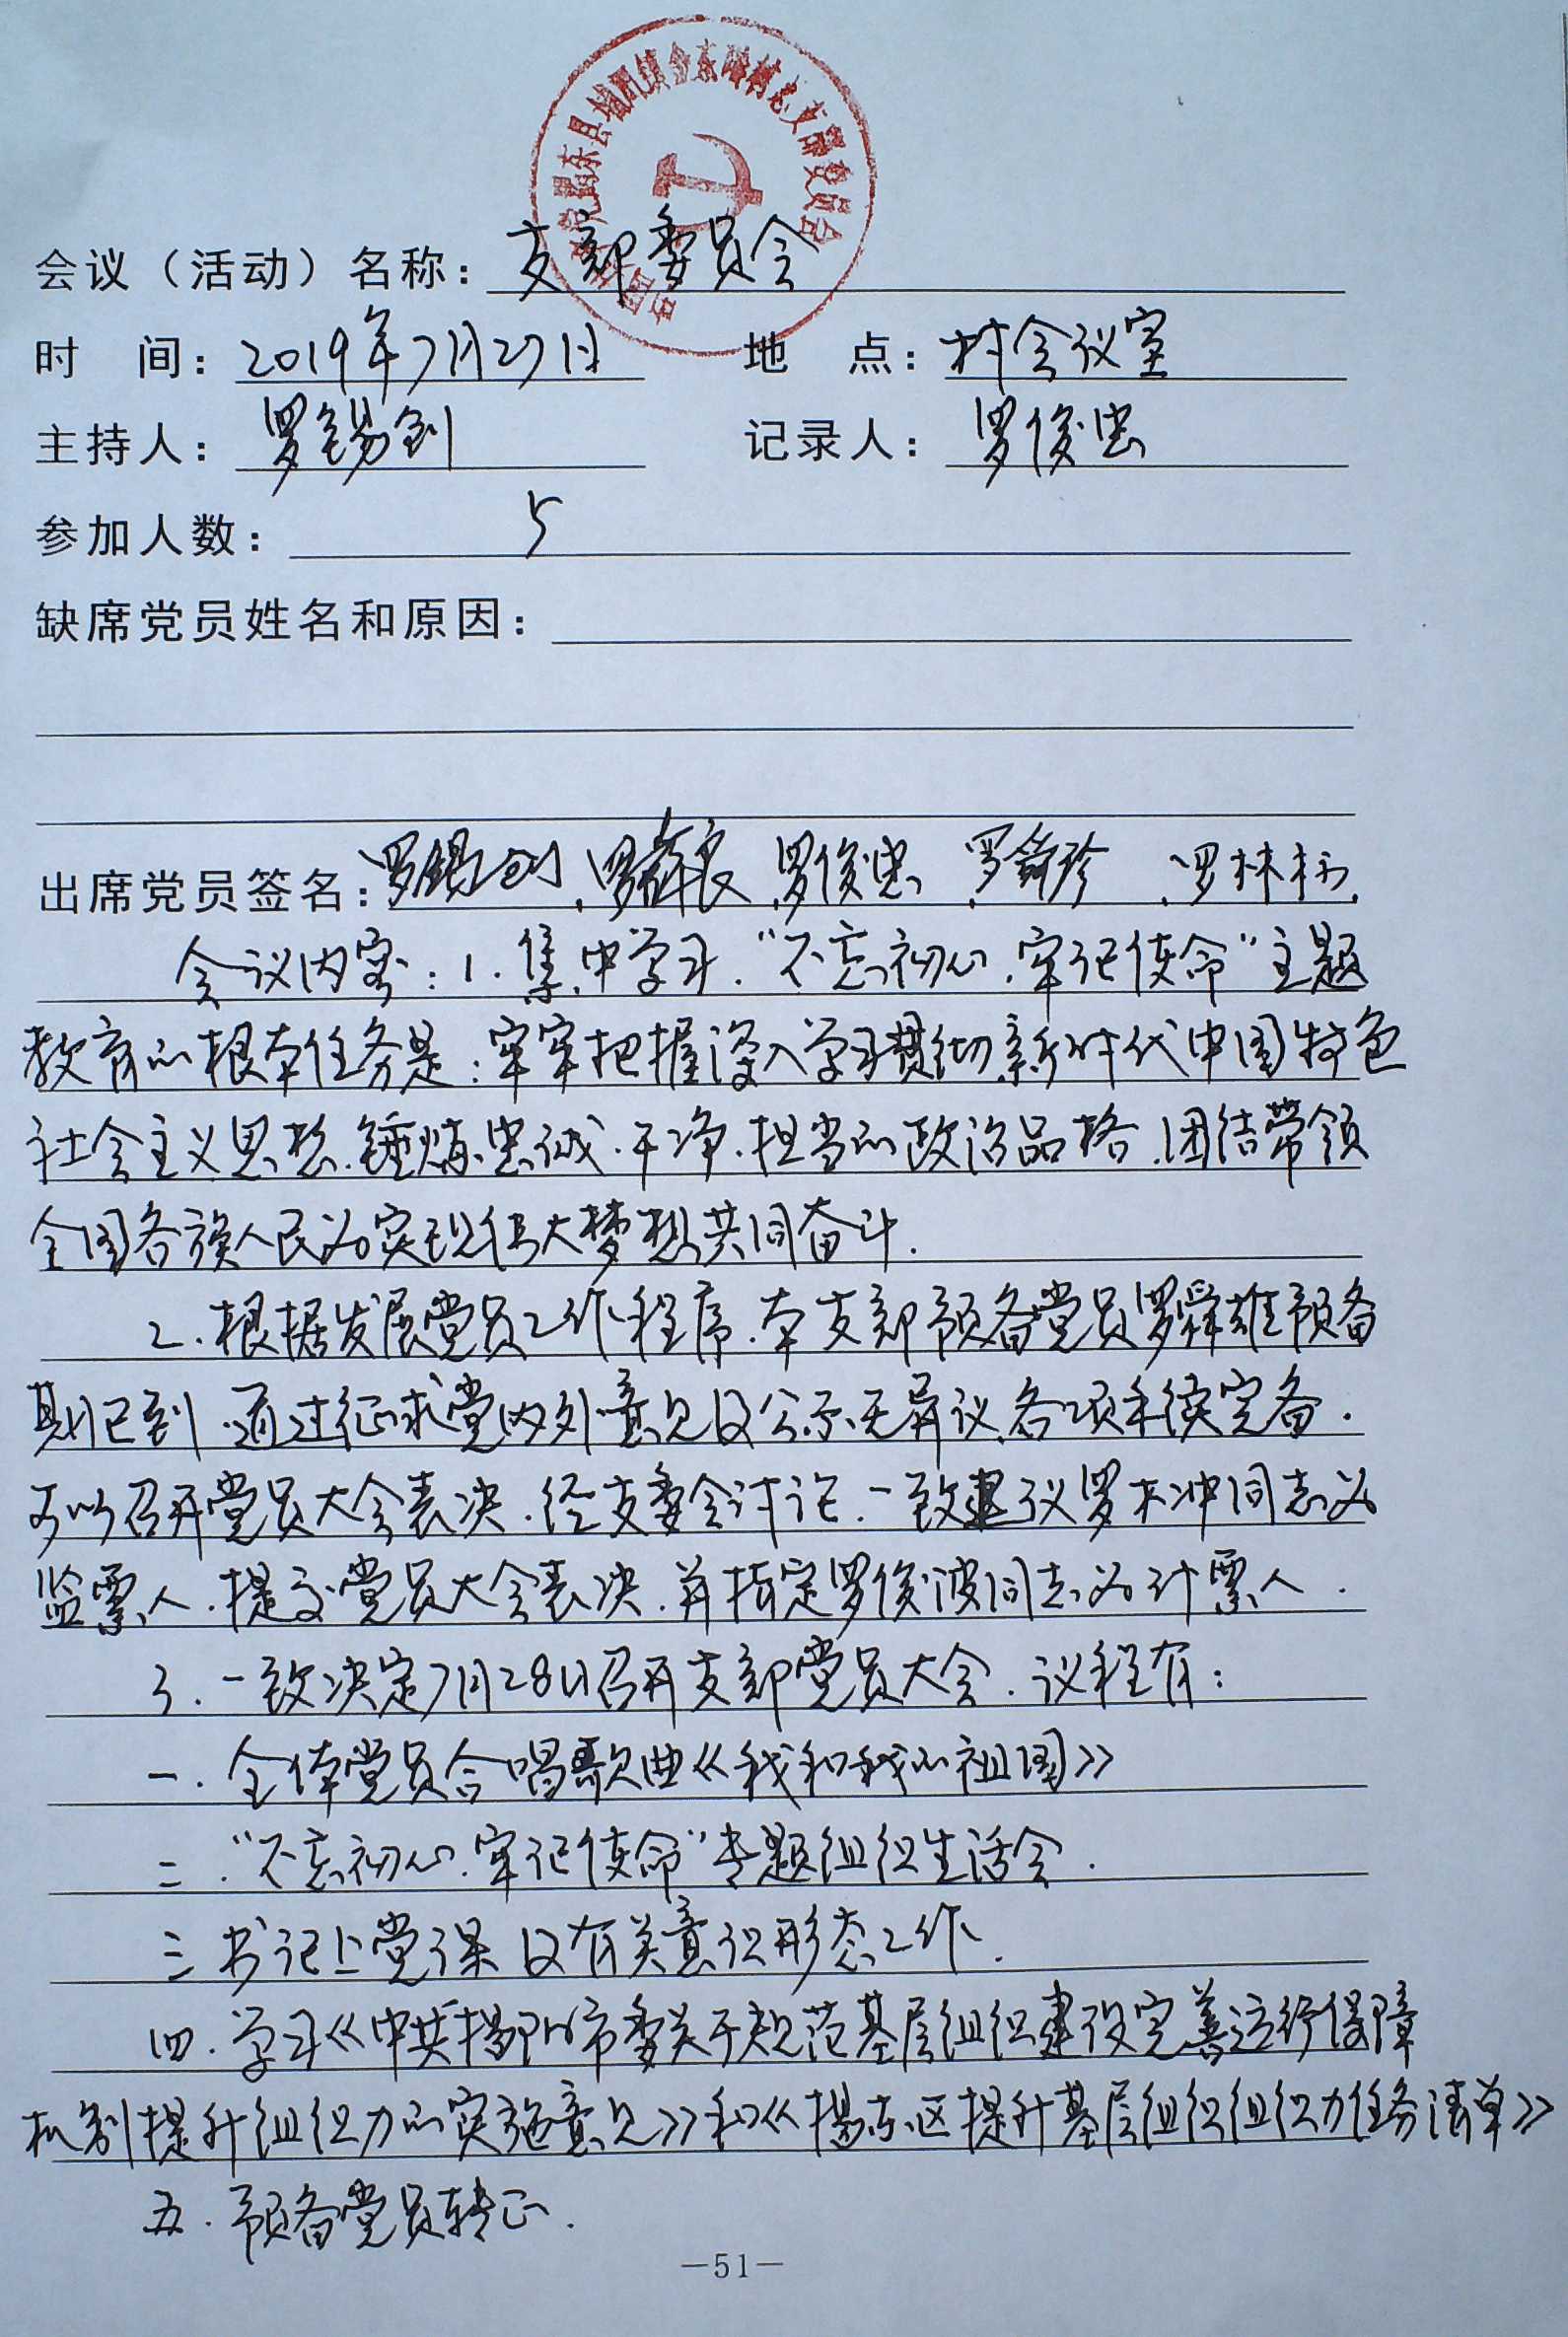 会议（活动）名称：支部委员会
时 间：2019年7月27日 地 点：村会议室
主持人：罗锡创 记录人：罗俊忠
参加人数：5
缺席党员姓名和原因：
出席党员签名：罗锡创、罗 良、罗俊忠、罗 珍、罗林
会议内容：1.集中学习.“不忘初心.牢记使命”主题
教育的根本任务是：牢牢把握深入学习贯彻新时代中国特色
社会主义思想.锤炼忠诚.干净.担当的政治品格.团结带领
全国各族人民为实现伟大梦想共同奋斗.
2.根据发展党员工作程序.本支部预备党员罗舜雄预备
期已到.通过征求党内外意见及公示无异议.各项手续完备.
可以召开党员大会表决.经支委会讨论.一致建议罗木冲同志为
监票人.提交党员大会表决.并指定罗俊波同志为计票人.
3.一致决定7月28日召开支部党员大会.议程有：
一.全体党员合唱歌曲《我和我的祖国》
二.“不忘初心.牢记使命”专题组织生活会.
三.书记上党课及有关意识形态工作.
四.学习《中共揭阳市委关于规范基层组织建设完善运行保障
机制提升组织力的实施意见》和《揭东区提升基层组织组织力任务清单》
五.预备党员转正.
—51—